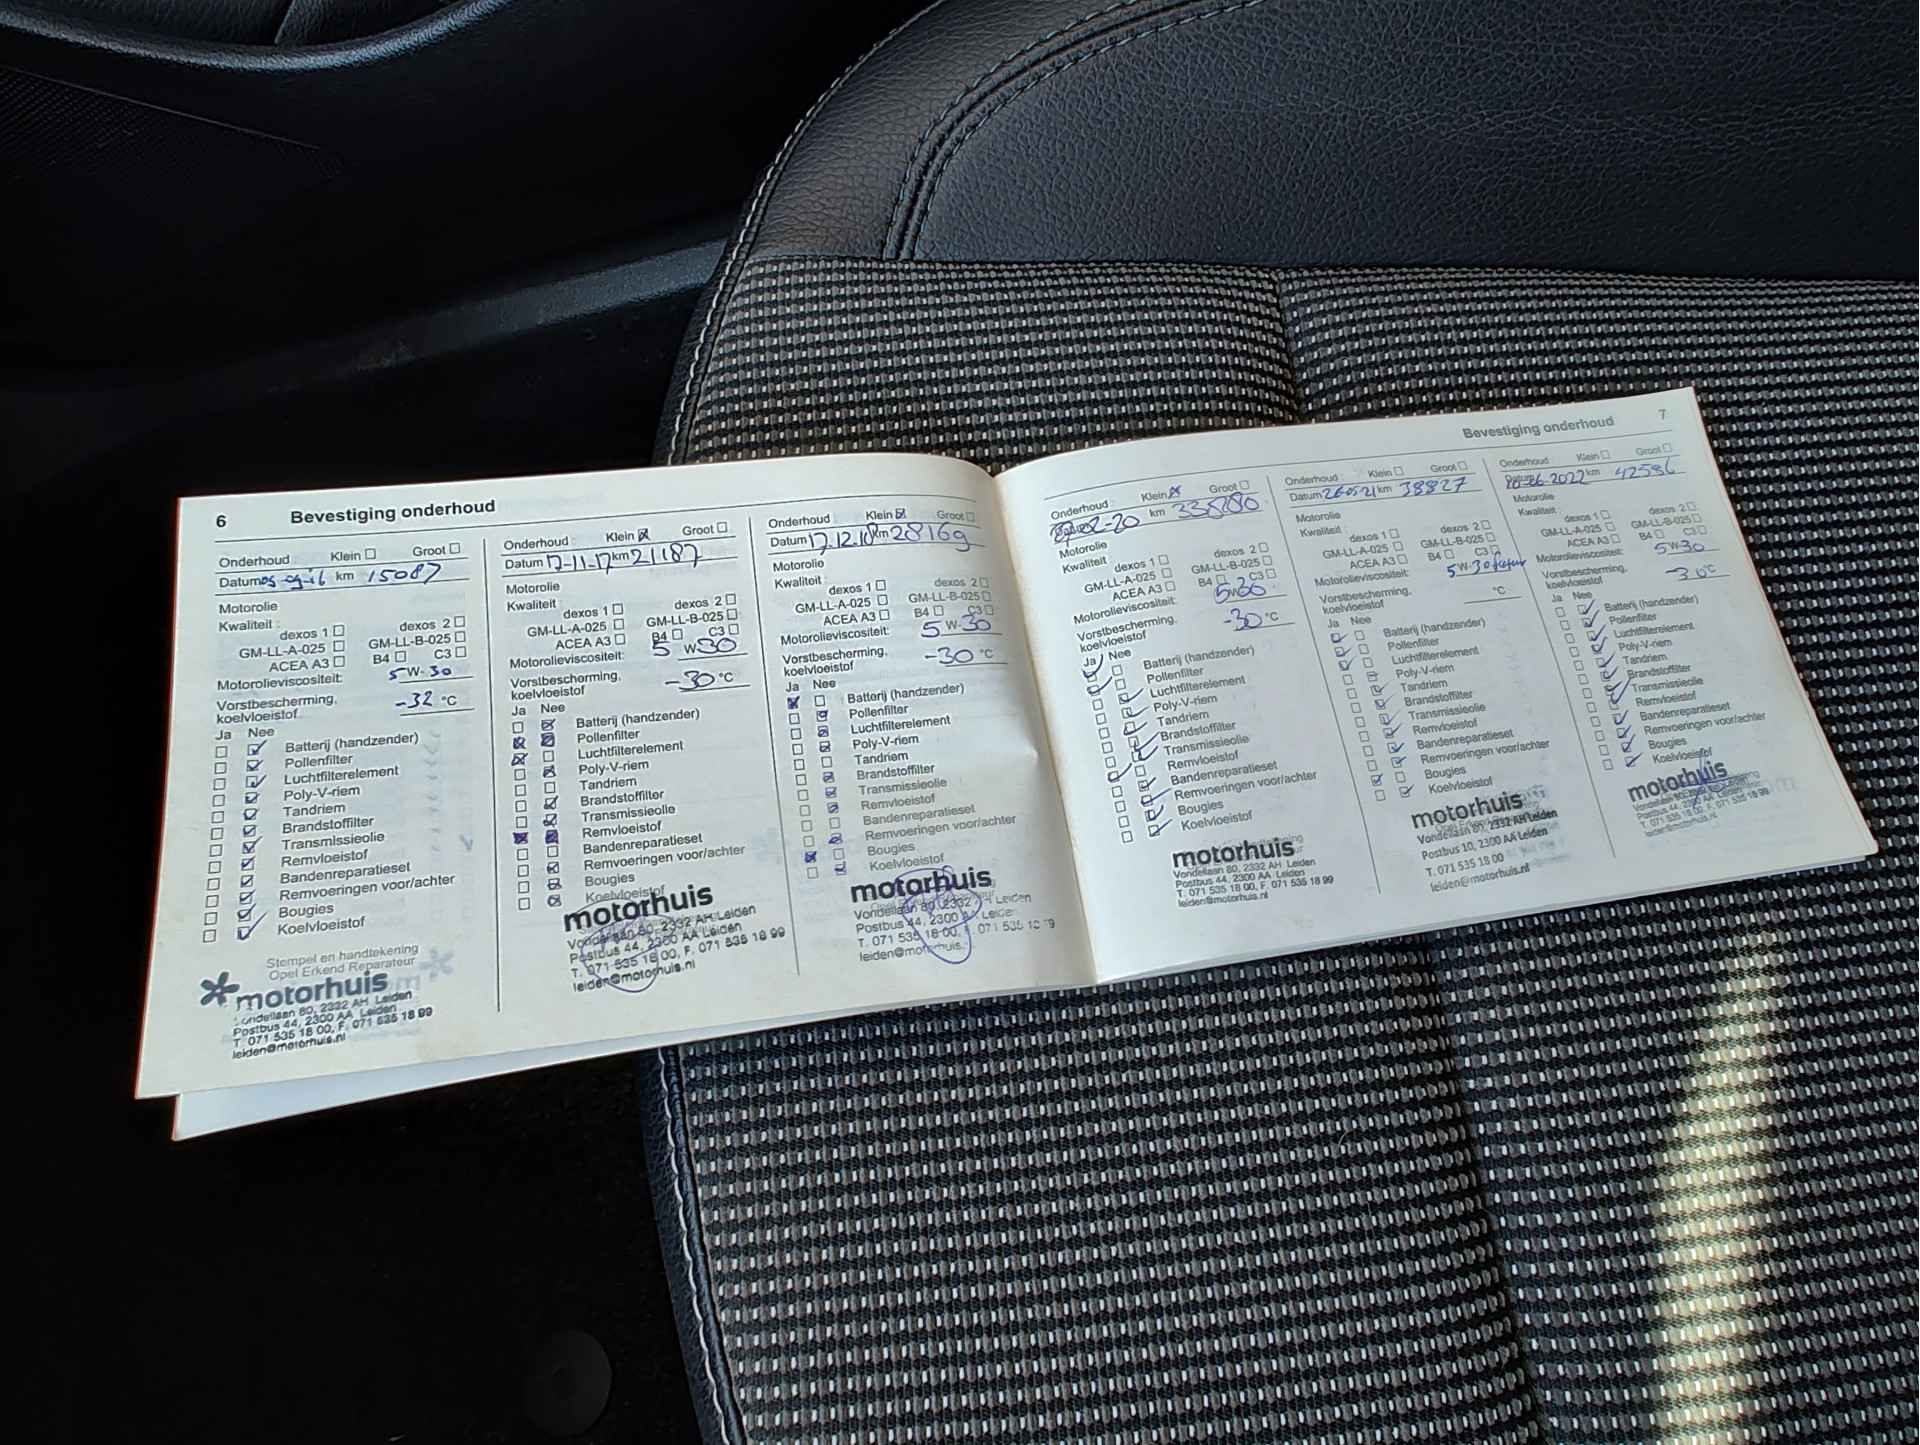 6 Bevestiging onderhoud
Onderhoud Klein Groot
Datum km 15087
Motorolie
Kwaliteit :
dexos 1 dexos 2
GM-LL-A-025 GM-LL-B-025
ACEA A3 B4 C3
Motorolieviscositeit: 5 W- 30
Vorstbescherming,
koelvloeistof -32 °C
Ja Nee
Batterij (handzender)
Pollenfilter
Luchtfilterelement
Poly-V-riem
Tandriem
Brandstoffilter
Transmissieolie
Remvloeistof
Bandenreparatieset
Remvoeringen voor/achter
Bougies
Koelvloeistof
Stempel en handtekening
Opel Erkend Reparateur
motorhuis
Vondellaan 80, 2332 AH Leiden
Postbus 44, 2300 AA Leiden
T. 071 535 18 00, F. 071 535 18 99
leiden@motorhuis.nl
Onderhoud : Klein Groot
Datum 17-11-17 km 21187
Motorolie
Kwaliteit :
dexos 1 dexos 2
GM-LL-A-025 GM-LL-B-025
ACEA A3 B4 C3
Motorolieviscositeit: 5 W 30
Vorstbescherming,
koelvloeistof -30 °C
Ja Nee
Batterij (handzender)
Pollenfilter
Luchtfilterelement
Poly-V-riem
Tandriem
Brandstoffilter
Transmissieolie
Remvloeistof
Bandenreparatieset
Remvoeringen voor/achter
Bougies
Koelvloeistof
motorhuis
Vondellaan 80, 2332 AH Leiden
Postbus 44, 2300 AA Leiden
T. 071 535 18 00, F. 071 535 18 99
leiden@motorhuis.nl
Onderhoud : Klein Groot
Datum 17-12-18 km 28169
Motorolie
Kwaliteit :
dexos 1 dexos 2
GM-LL-A-025 GM-LL-B-025
ACEA A3 B4 C3
Motorolieviscositeit: 5 W-30
Vorstbescherming,
koelvloeistof -30 °C
Ja Nee
Batterij (handzender)
Pollenfilter
Luchtfilterelement
Poly-V-riem
Tandriem
Brandstoffilter
Transmissieolie
Remvloeistof
Bandenreparatieset
Remvoeringen voor/achter
Bougies
Koelvloeistof
motorhuis
Vondellaan 80, 2332 AH Leiden
Postbus 44, 2300 AA Leiden
T. 071 535 18 00, F. 071 535 18 99
leiden@motorhuis.
Bevestiging onderhoud 7
Onderhoud : Klein Groot
km
Motorolie
Kwaliteit :
dexos 1 dexos 2
GM-LL-A-025 GM-LL-B-025
ACEA A3 B4 C3
Motorolieviscositeit:
Vorstbescherming, -30 °C
koelvloeistof
Ja Nee
Batterij (handzender)
Pollenfilter
Luchtfilterelement
Poly-V-riem
Tandriem
Brandstoffilter
Transmissieolie
Remvloeistof
Bandenreparatieset
Remvoeringen voor/achter
Bougies
Koelvloeistof
motorhuis
Vondellaan 80, 2332 AH Leiden
Postbus 44, 2300 AA Leiden
T. 071 535 18 00, F. 071 535 18 99
leiden@motorhuis.nl
Onderhoud : Klein Groot
Datum 26-05-21 km 38827
Motorolie
Kwaliteit :
dexos 1 dexos 2
GM-LL-A-025 GM-LL-B-025
ACEA A3 B4 C3
Motorolieviscositeit: 5 W-30
Vorstbescherming,
koelvloeistof °C
Ja Nee
Batterij (handzender)
Pollenfilter
Luchtfilterelement
Poly-V-riem
Tandriem
Brandstoffilter
Transmissieolie
Remvloeistof
Bandenreparatieset
Remvoeringen voor/achter
Bougies
Koelvloeistof
motorhuis
Vondellaan 80, 2332 AA Leiden
Postbus 10, 2300 AA Leiden
T. 071 535 18 00
leiden@motorhuis.nl
Onderhoud Klein Groot
Datum 20-06-2022 km 42586
Motorolie
Kwaliteit :
dexos 1 dexos 2
GM-LL-A-025 GM-LL-B-025
ACEA A3 B4 C3
Motorolieviscositeit: 5 W 30
Vorstbescherming,
koelvloeistof -30 °C
Ja Nee
Batterij (handzender)
Pollenfilter
Luchtfilterelement
Poly-V-riem
Tandriem
Brandstoffilter
Transmissieolie
Remvloeistof
Bandenreparatieset
Remvoeringen voor/achter
Bougies
Koelvloeistof
motorhuis
Vondellaan 80, 2332 AH Leiden
Postbus 44, 2300 AA Leiden
T. 071 535 18 00, F. 071 535 18 99
leiden@motorhuis.nl